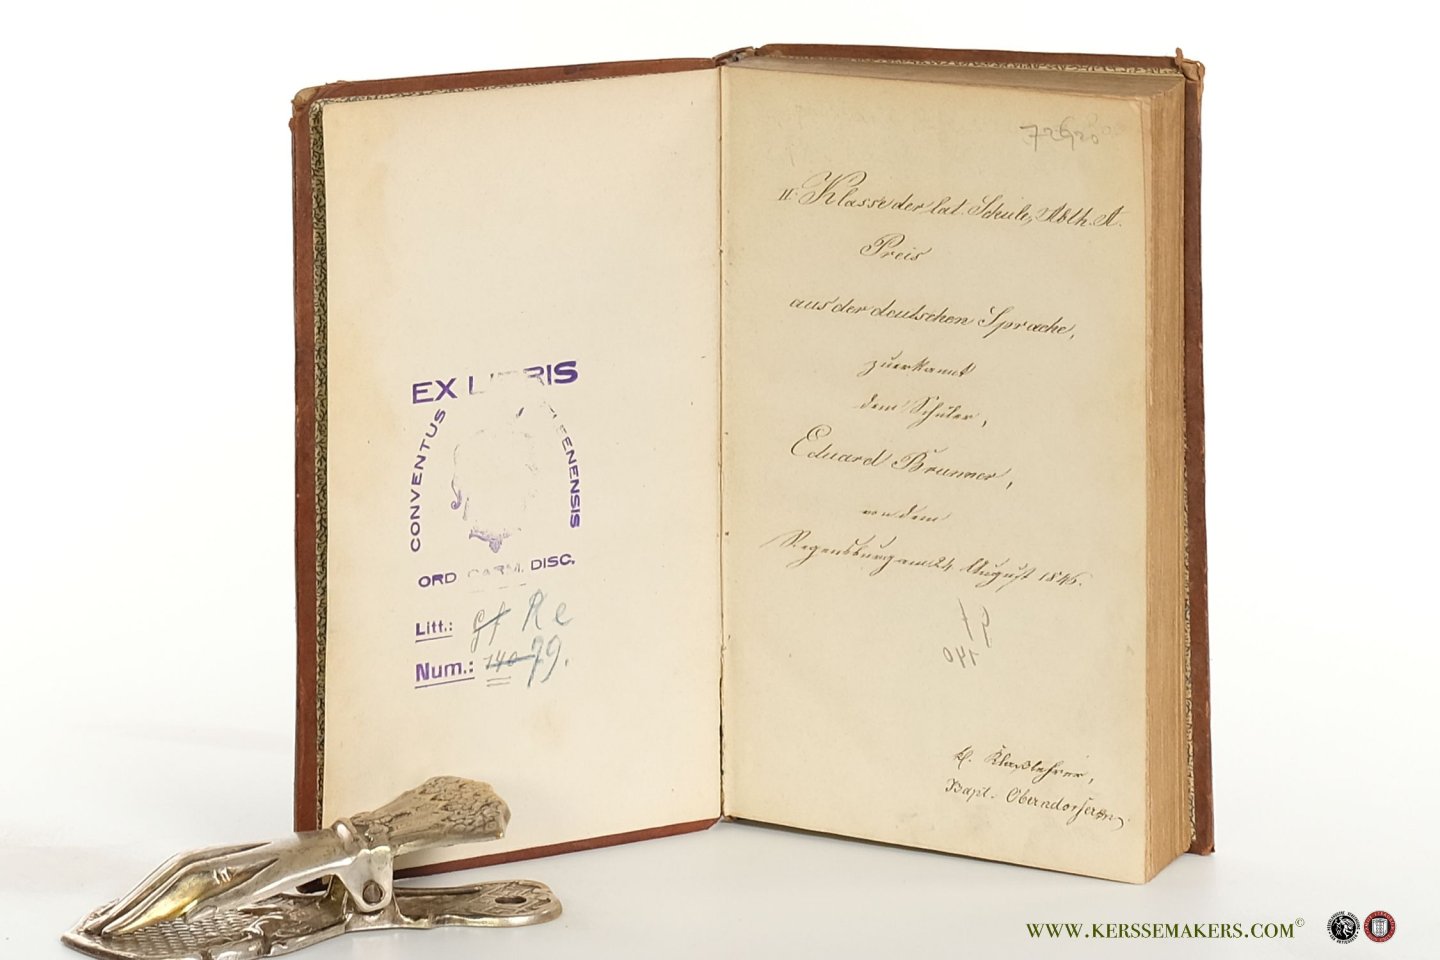 EX LIBRIS
CONVENTUS
ORD. CARM. DISC.
Litt.: Re
Num.: 140 79.
II. Klasse der lat. Schule, Abth. A.
Preis
aus der deutschen Sprache,
zuerkannt
dem Schüler,
Eduard Brunner,
von dem
Regensburg am 24. August 1846.
140
Klaßlehrer,
Bapt. Oberndorfer
WWW.KERSSEMAKERS.COM©